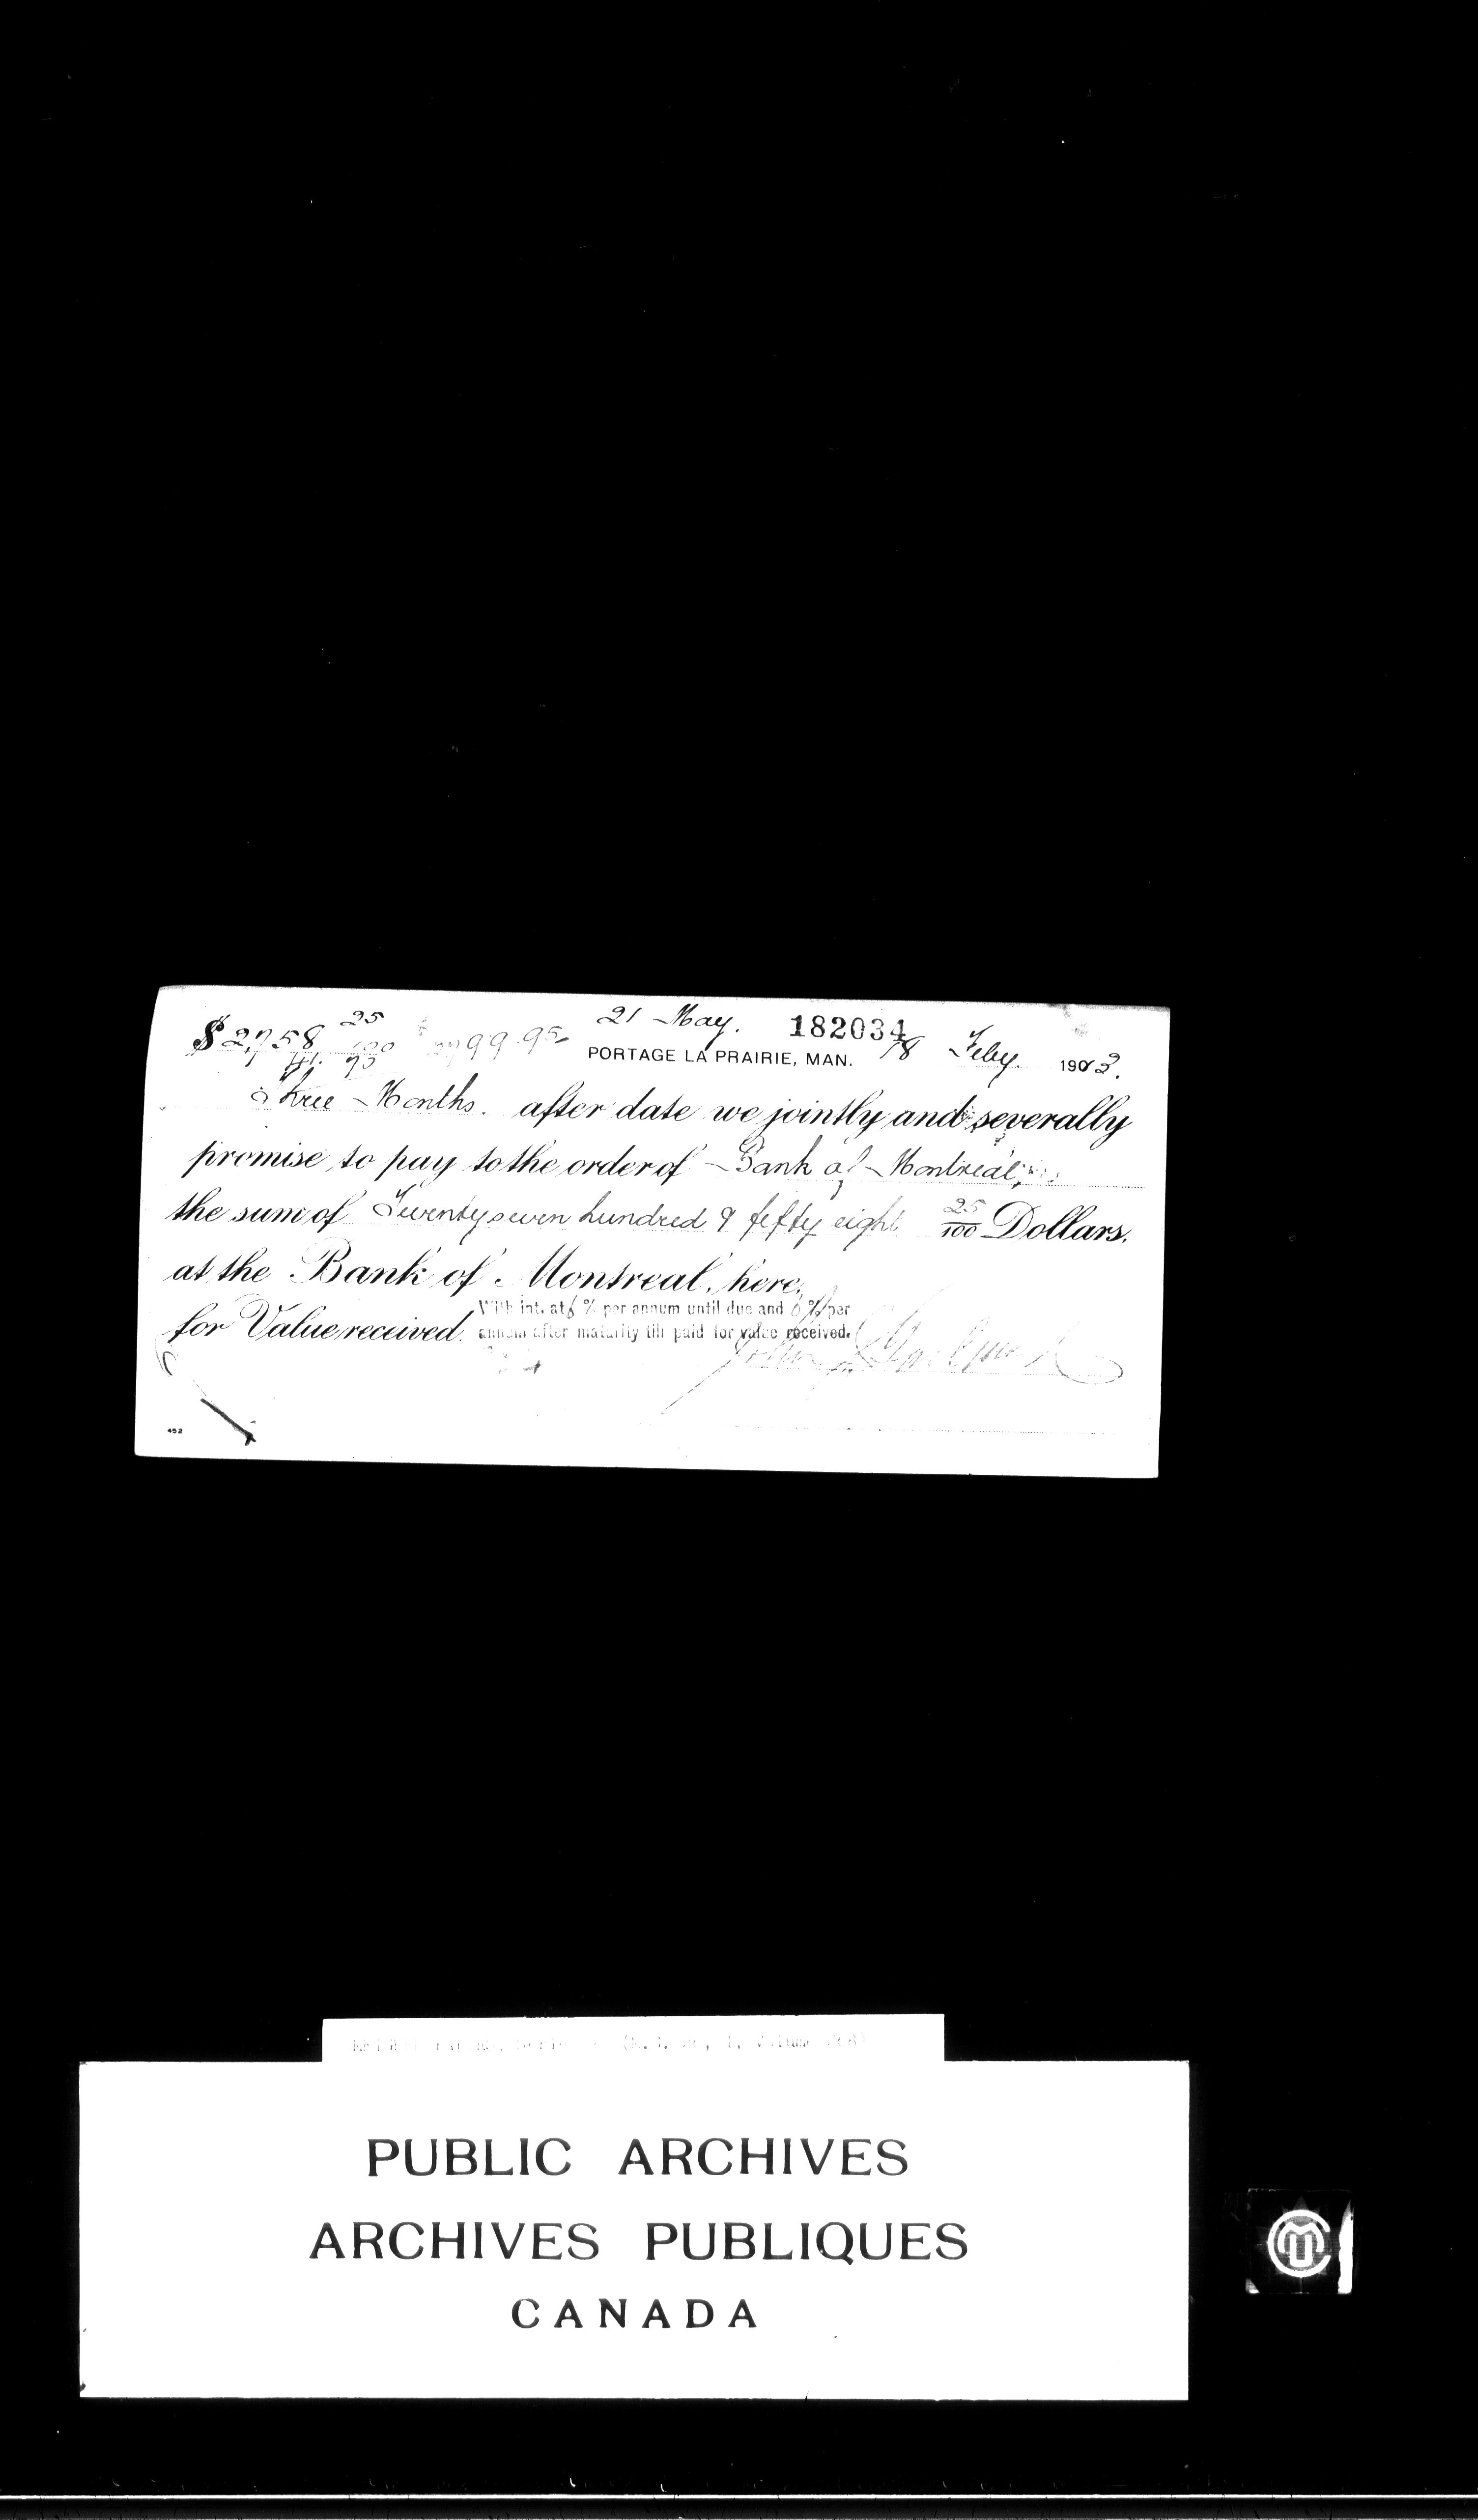 $2,758 25/100 2799.95 21 May. 182034
41.70
PORTAGE LA PRAIRIE, MAN. 18 Feby. 1903.
Three Months. after date we jointly and severally
promise to pay to the order of Bank of Montreal,
the sum of Twenty seven hundred & fifty eight 25/100 Dollars.
at the Bank of Montreal, here,
for Value received.
With int. at 6 % per annum until due and 6 % per
annum after maturity till paid for value received.
John
452
Volume
PUBLIC ARCHIVES
ARCHIVES PUBLIQUES
CANADA